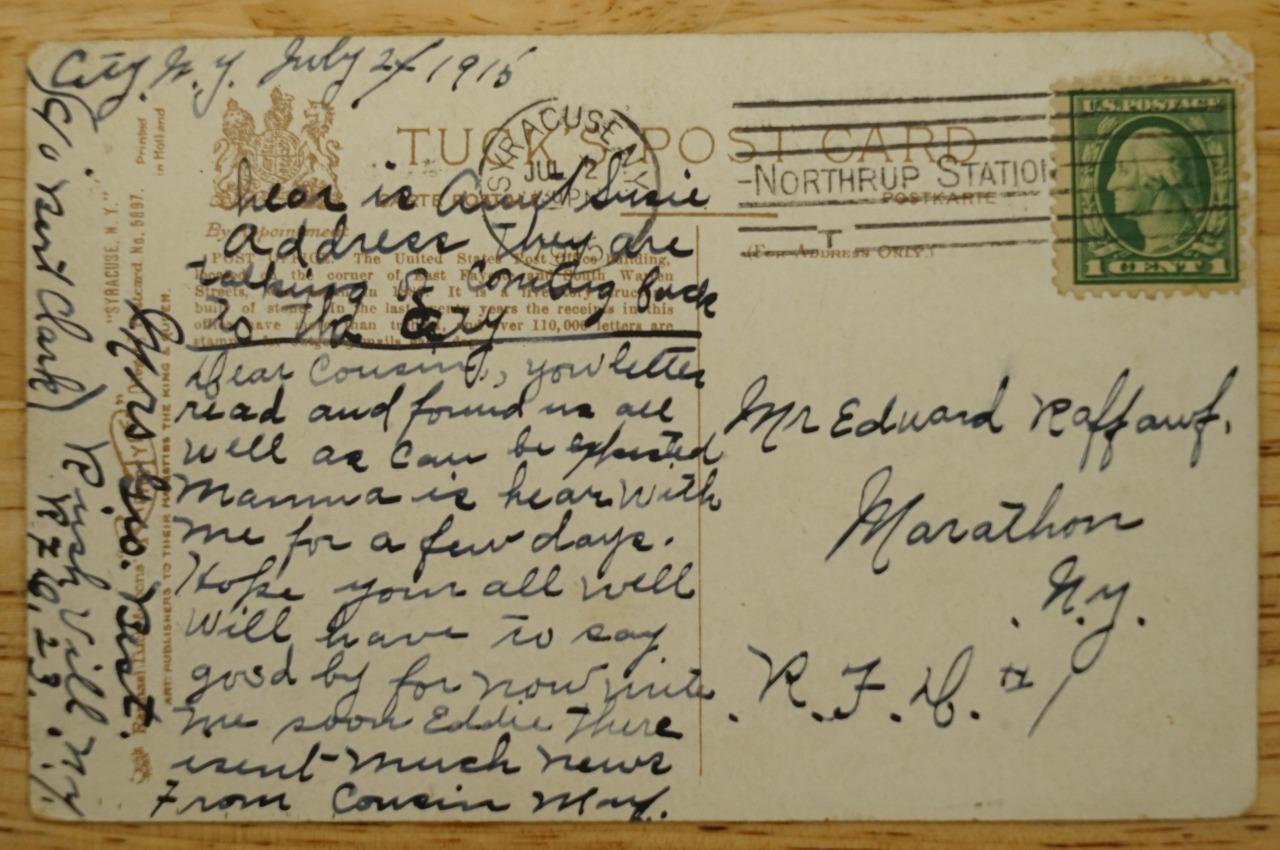 City. N.Y. July 24 1915
TUCK'S POST CARD
CARTE POSTALE
POSTKARTE
(For Address Only.)
By Appointment
SYRACUSE, N.Y.
JUL 2
NORTHRUP STATION
U.S. POSTAGE
1 CENT 1
hear is Aunt Susie
address they are
talking of coming back
to the City
Dear Cousin, your letter
read and found us all
well as can be expected
Mamma is hear with
me for a few days.
Hope your all well
Will have to say
good by for now write
me soon Eddie there
isent much news
From Cousin May.
Mr Edward Raffauf.
Marathon
N.Y.
R.F.D. # 1
POST OFFICE. The United States Post Office building,
located on the corner of East Fayette and South Warren
Streets,
built of stone. In the last twenty years the receipts in this
office have more than and over 110,000 letters are
Mrs. Geo.
C/o Clark
N.Y.
R.F.D. 23.
"SYRACUSE, N. Y."
Postcard No. 5897.
Printed
in Holland
ART PUBLISHERS TO THEIR MAJESTIES THE KING & QUEEN.